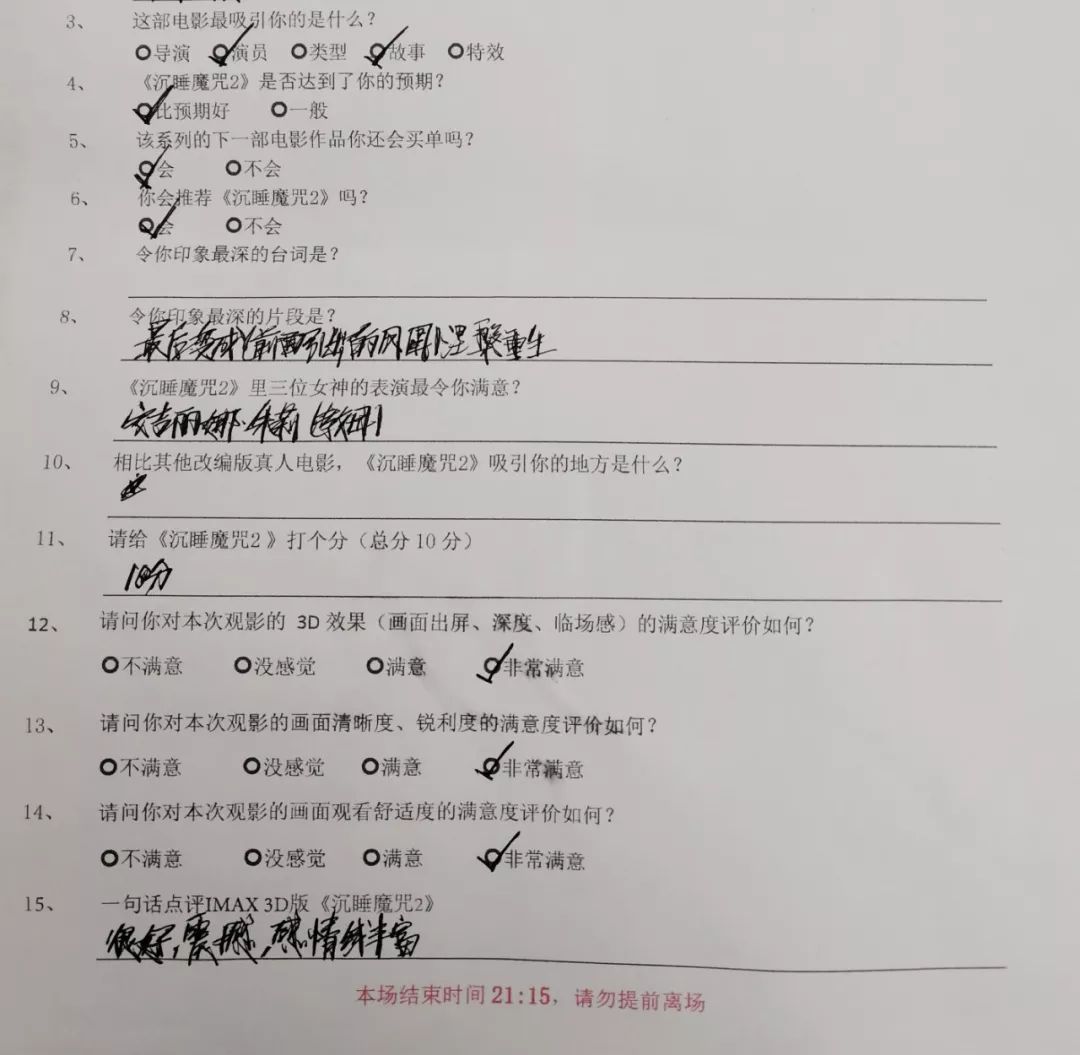 3、 这部电影最吸引你的是什么？
导演 演员 类型 故事 特效
4、 《沉睡魔咒2》是否达到了你的预期？
比预期好 一般
5、 该系列的下一部电影作品你还会买单吗？
会 不会
6、 你会推荐《沉睡魔咒2》吗？
会 不会
7、 令你印象最深的台词是？
8、 令你印象最深的片段是？
最后变成 涅槃重生
9、 《沉睡魔咒2》里三位女神的表演最令你满意？
安吉丽娜·朱莉
10、 相比其他改编版真人电影，《沉睡魔咒2》吸引你的地方是什么？
11、 请给《沉睡魔咒2 》打个分（总分10 分）
10分
12、 请问你对本次观影的 3D 效果（画面出屏、深度、临场感）的满意度评价如何？
不满意 没感觉 满意 非常满意
13、 请问你对本次观影的画面清晰度、锐利度的满意度评价如何？
不满意 没感觉 满意 非常满意
14、 请问你对本次观影的画面观看舒适度的满意度评价如何？
不满意 没感觉 满意 非常满意
15、 一句话点评IMAX 3D版《沉睡魔咒2》
很好，震撼，感情线丰富
本场结束时间 21:15，请勿提前离场